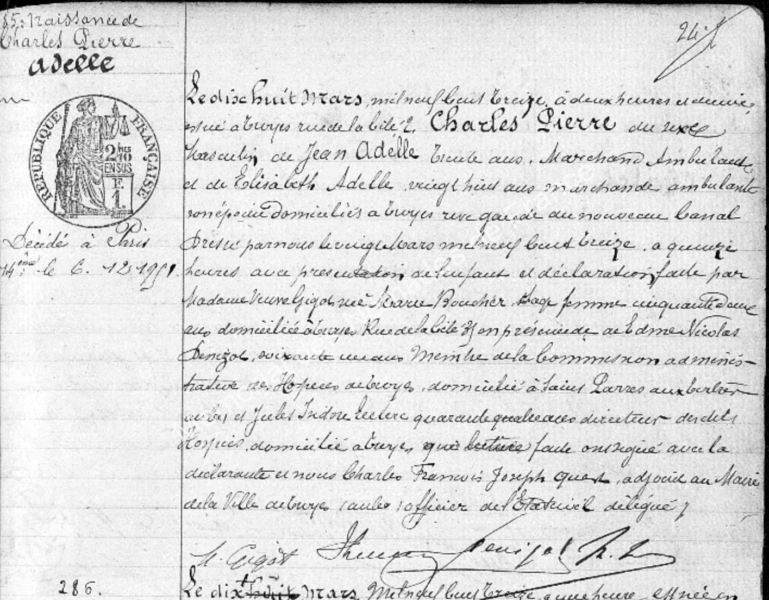 85: Naissance de
Charles Pierre
Adelle
24
RÉPUBLIQUE FRANÇAISE
2/10 EN SUS
F. 1
Décédé à Paris
14ème le 6.12.1951.
Le dix huit Mars, mil neuf cent treize, à deux heures et demie
est né à Troyes rue de la Cité 2, Charles Pierre du sexe
Masculin de Jean Adelle trente ans, Marchand Ambulant
et de Elisabeth Adelle, vingt huit ans marchande ambulante
son épouse domiciliés à Troyes rive gauche du nouveau Canal
Dressé par nous le vingt Mars mil neuf cent treize, à quinze
heures, avec présentation de l'enfant et déclaration faite par
Madame Veuve Gigot née Marie Boucher sage femme cinquante deux
ans domiciliée à Troyes Rue de la Cité en présence de Edme Nicolas
Denizot, soixante un ans Membre de la Commission adminis-
trative des Hospices de Troyes, domicilié à Saint Parres aux Tertres
et Jules Isidore Leclerc quarante quatre ans directeur desdits
Hospices, domicilié à Troyes, qui lecture faite ont signé avec la
déclarante et nous Charles François Joseph adjoint au Maire
de la Ville de Troyes officier de l'Etat civil délégué
Gigot Denizot
286.
Le dix huit Mars Mil neuf cent treize heure est née